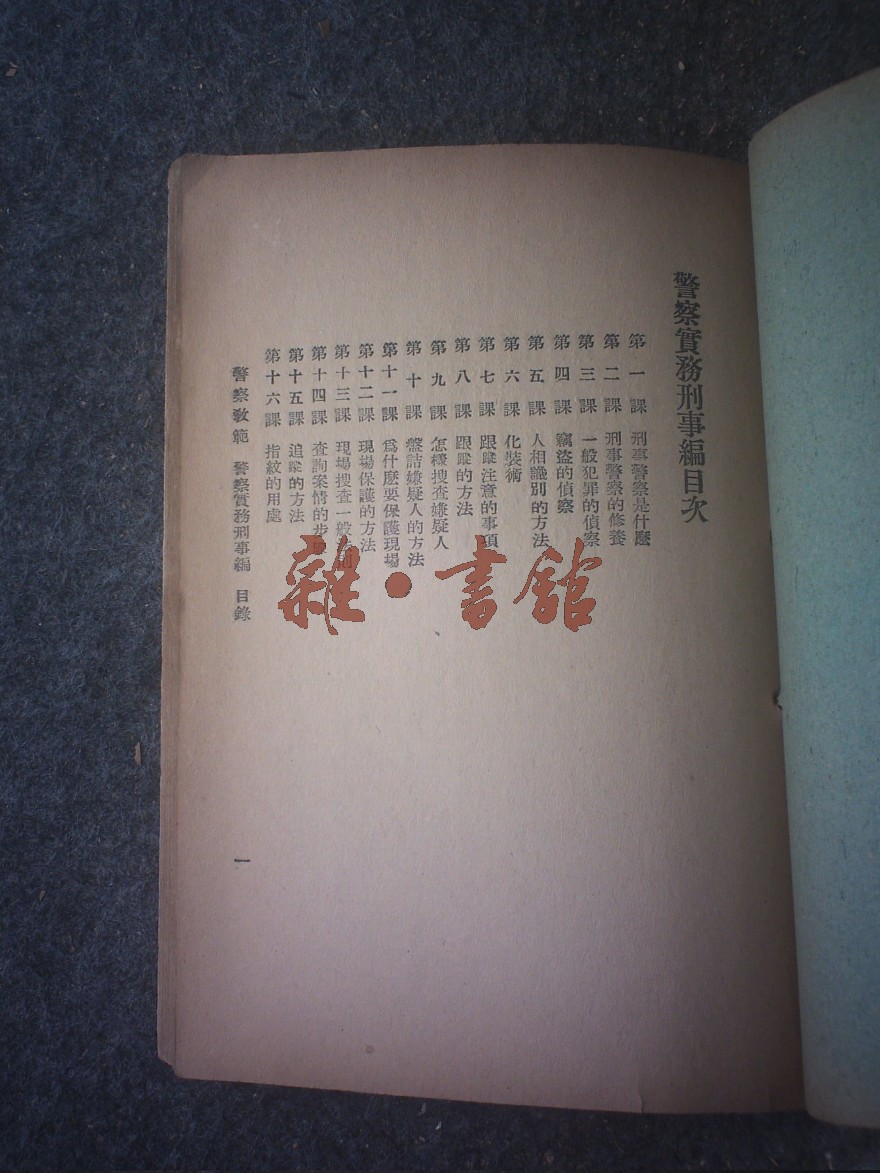 警察實務刑事編目次
第一課 刑事警察是什麼
第二課 刑事警察的修養
第三課 一般犯罪的偵察
第四課 竊盜的偵察
第五課 人相識別的方法
第六課 化裝術
第七課 跟蹤注意的事項
第八課 跟蹤的方法
第九課 怎樣搜查嫌疑人
第十課 盤詰嫌疑人的方法
第十一課 爲什麼要保護現場
第十二課 現場保護的方法
第十三課 現場搜查一般法則
第十四課 查詢案情的步
第十五課 追蹤的方法
第十六課 指紋的用處
警察教範 警察實務刑事編 目錄
一
雜·書館